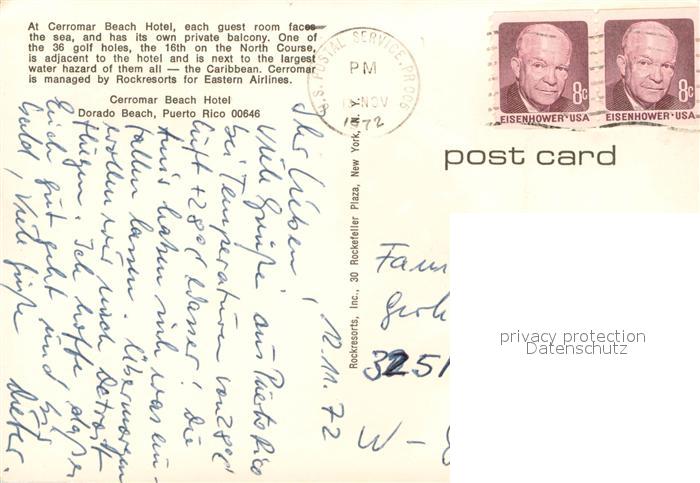 At Cerromar Beach Hotel, each guest room faces
the sea, and has its own private balcony. One of
the 36 golf holes, the 16th on the North Course,
is adjacent to the hotel and is next to the largest
water hazard of them all — the Caribbean. Cerromar
is managed by Rockresorts for Eastern Airlines.
Cerromar Beach Hotel
Dorado Beach, Puerto Rico 00646
U.S. POSTAL SERVICE, PR 006
PM
NOV
1972
8c
EISENHOWER·USA
8c
EISENHOWER·USA
post card
Rockresorts, Inc., 30 Rockefeller Plaza, New York, N. Y.
12.11.72
Ihr Lieben,
Viele Grüße aus Puerto Rico
bei Temperaturen von 28°C
Luft + 28°C Wasser! Die
haben sich was ein-
fallen lassen. Übermorgen
wollen wir nach Detroit
fliegen. Ich hoffe daß es
Euch gut geht und bin
bald, Viele Grüße
Dieter.
Fam
Gerh
3251
W-
privacy protection
Datenschutz